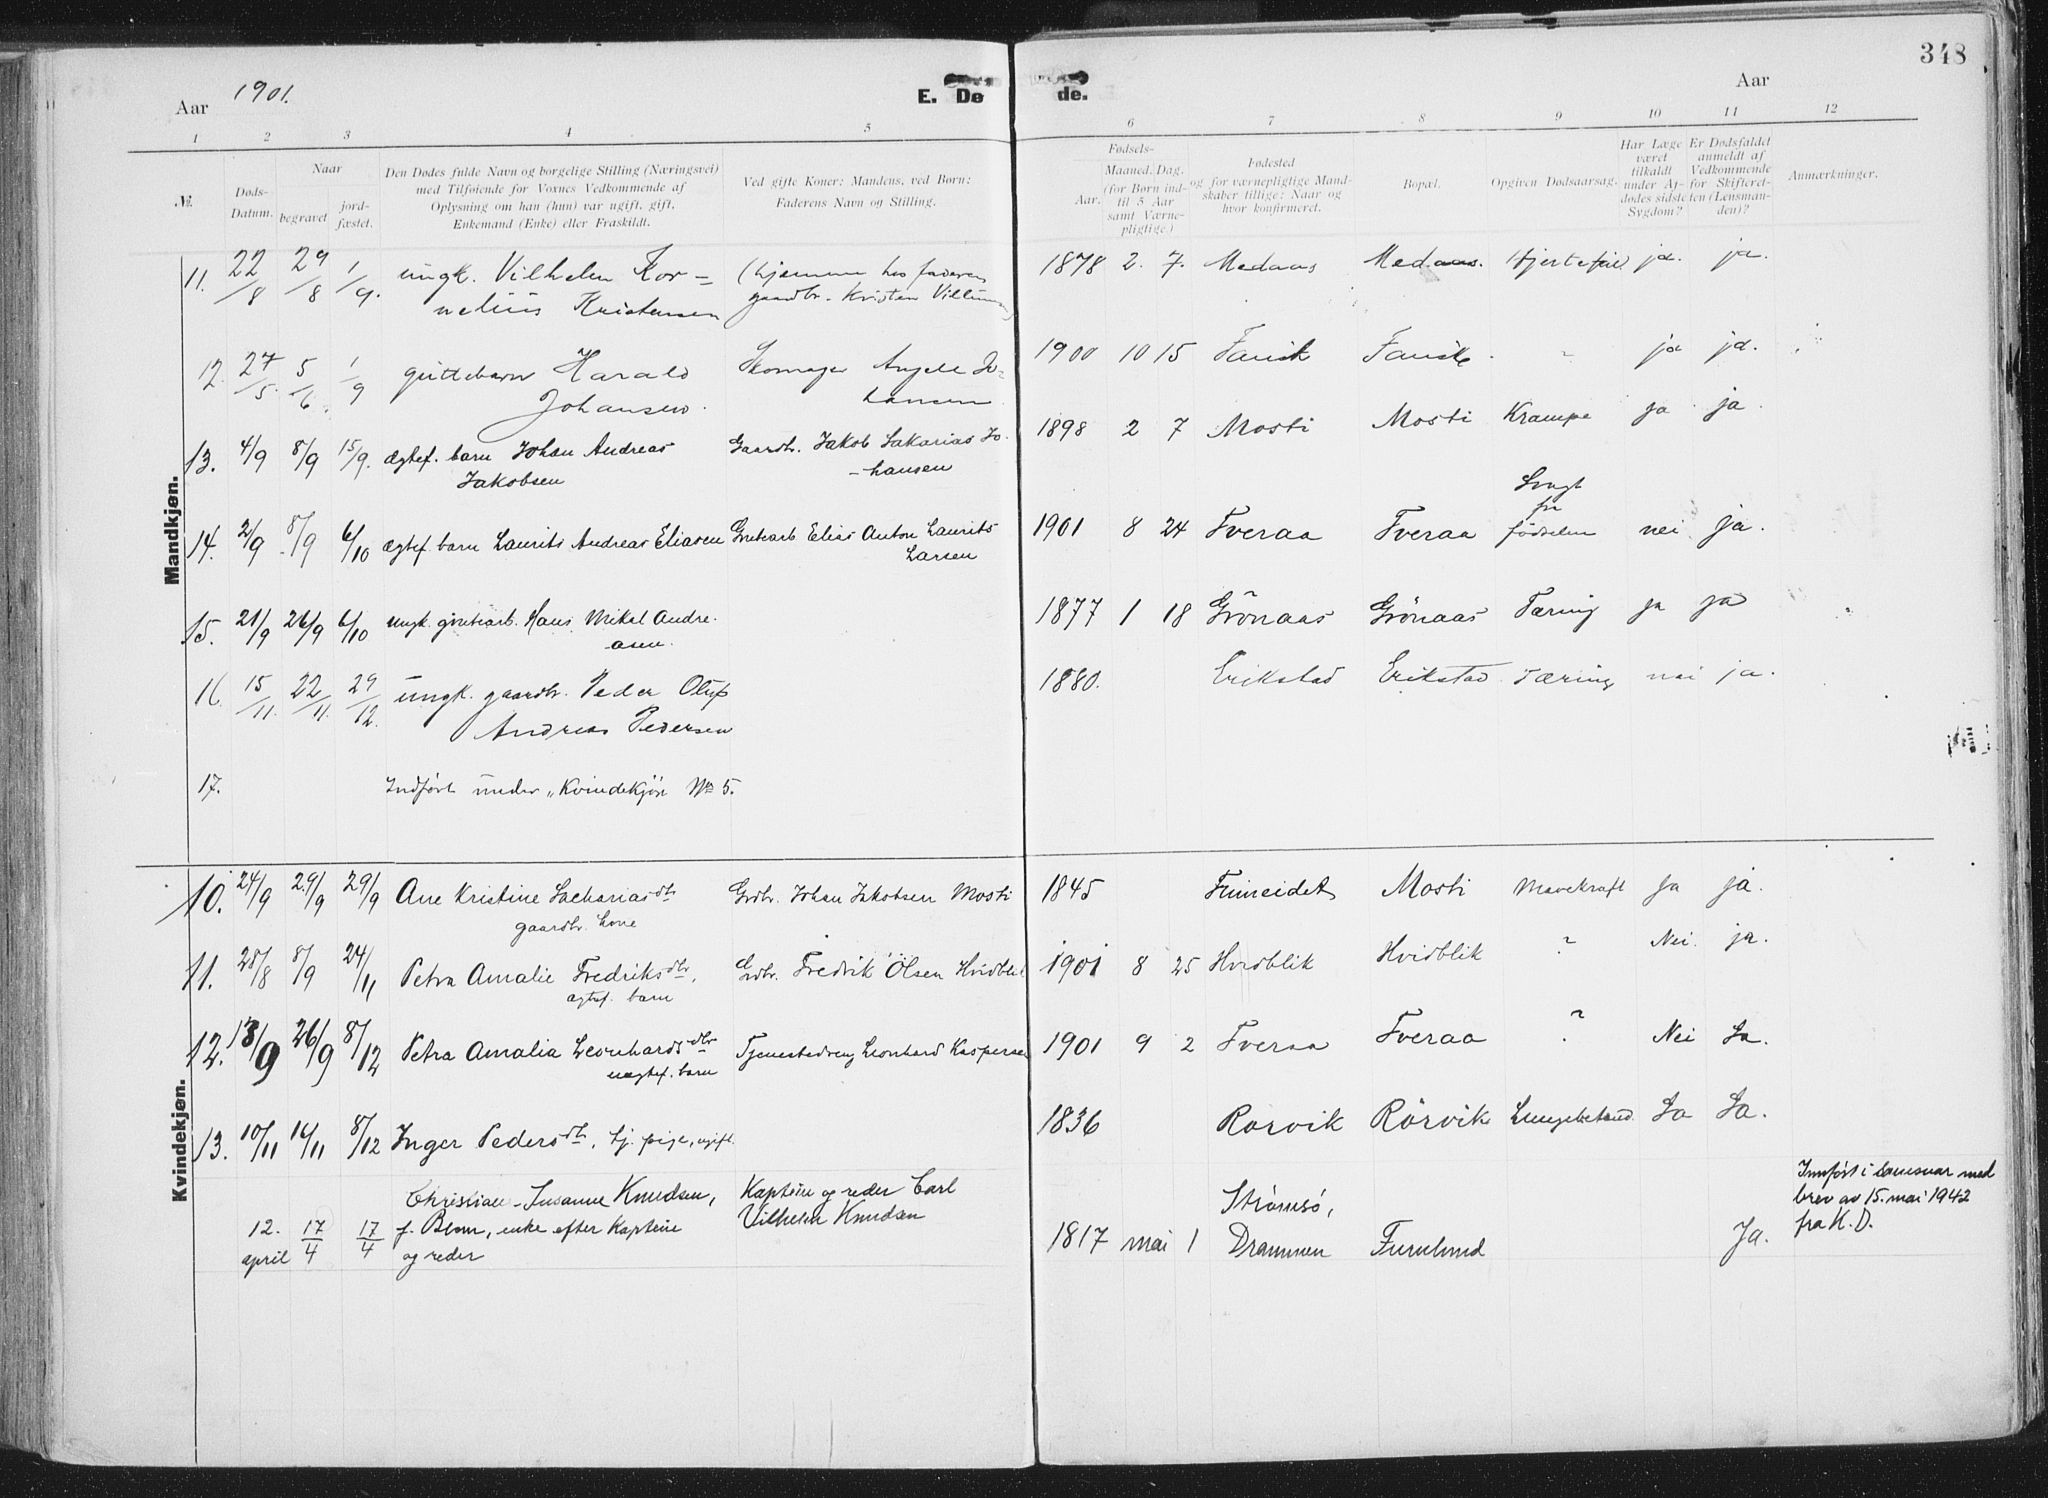 348
Aar 1901.
E. Dø de.
Aar
1 2 3 4 5 6 7 8 9 10 11 12
№.
Døds-Datum.
Naar
begravet
jord-fæstet.
Den Dødes fulde Navn og borgelige Stilling (Næringsvei)
med Tilføiende for Voxnes Vedkommende af
Oplysning om han (hun) var ugift, gift,
Enkemand (Enke) eller Fraskildt.
Ved gifte Koner: Mandens, ved Børn:
Faderens Navn og Stilling.
Fødsels-
Aar.
Maaned. Dag.
(for Børn ind-
til 5 Aar
samt Værne-
pligtige.)
Fødested
og for værnepligtige Mand-
skaber tillige: Naar og
hvor konfirmeret.
Bopæl.
Opgiven Dødsaarsag.
Har Læge
været
tilkaldt
under Af-
dødes sidste
Sygdom?
Er Dødsfaldet
anmeldt af
Vedkommende
for Skifteret-
ten (Lensman-
den)?
Anmærkninger.
Mandkjøn.
11. 22/8 29/8 1/9. ungk. Vilhelm Kor- (hjemme hos faderen 1878 2. 7. Medaas Medaas. Hjertefeil ja. ja.
nelius Kristensen gaardbr. Kristen Villum
12. 27/5. 5/6. 1/9 guttebarn Harald Skomager Angell Jo- 1900 10 15 Fausk Fauske - ja ja.
Johansen. hansen
13. 4/9 8/9 15/9. ægtef. barn Johan Andreas Gaardbr. Jakob Sakarias Jo- 1898 2 7 Mosti Mosti Krampe ja ja
Jakobsen -hansen
14. 2/9 8/9 6/10 ægtef. barn Laurits Andreas Eliasen Grubearb Elias Anton Laurits 1901 8 24 Tveraa Tveraa Svagt fra fødselen nei ja.
Larsen
15. 21/9 26/9 6/10 ungk. grubearb. Hans Mikal Andre- 1877 1 18 Grönaas Grönaas Tæring ja ja
asen.
16. 15/11. 22/11. 29/12. ungk. gaardbr. Peder Oluf 1880. Erikstad Erikstad Tæring nei ja.
Andreas Pedersen
17. Indført under „Kvindekjön № 5.
Kvindekjøn.
10. 24/9 29/9 29/9 Ane Kristine Sachariasdtr Grdbr. Johan Jakobsen Mosti 1845 Finneidet Mosti Mavekræft Ja ja.
gaardbr. kone
11. 28/8 8/9 24/11 Petra Amalie Fredriksdtr, Grdbr. Fredrik Ölsen Hvidblik 1901 8 25 Hvidblik Hvidblik ? Nei. ja.
ægtef. barn
12. 13/9 26/9 8/12 Petra Amalia Leonhardsdtr Tjenestedreng Leonhard Kaspersen 1901 9 2 Tveraa Tveraa ? Nei Ja.
uægtef. barn
13. 10/11 16/11 8/12 Inger Pedersdtr, tj. pige, ugift. 1836 Rørvik Rörvik Lungebetænd. Ja Ja.
12. april 17/4 17/4 Christiane Susanne Knudsen, Kaptein og reder Carl 1817 mai 1 Strømsø, Furulund Ja. Innført i samsvar med
f. Blom, enke efter Kaptein Vilhelm Knudsen Drammen brev av 15. mai 1942
og reder fra K.D.